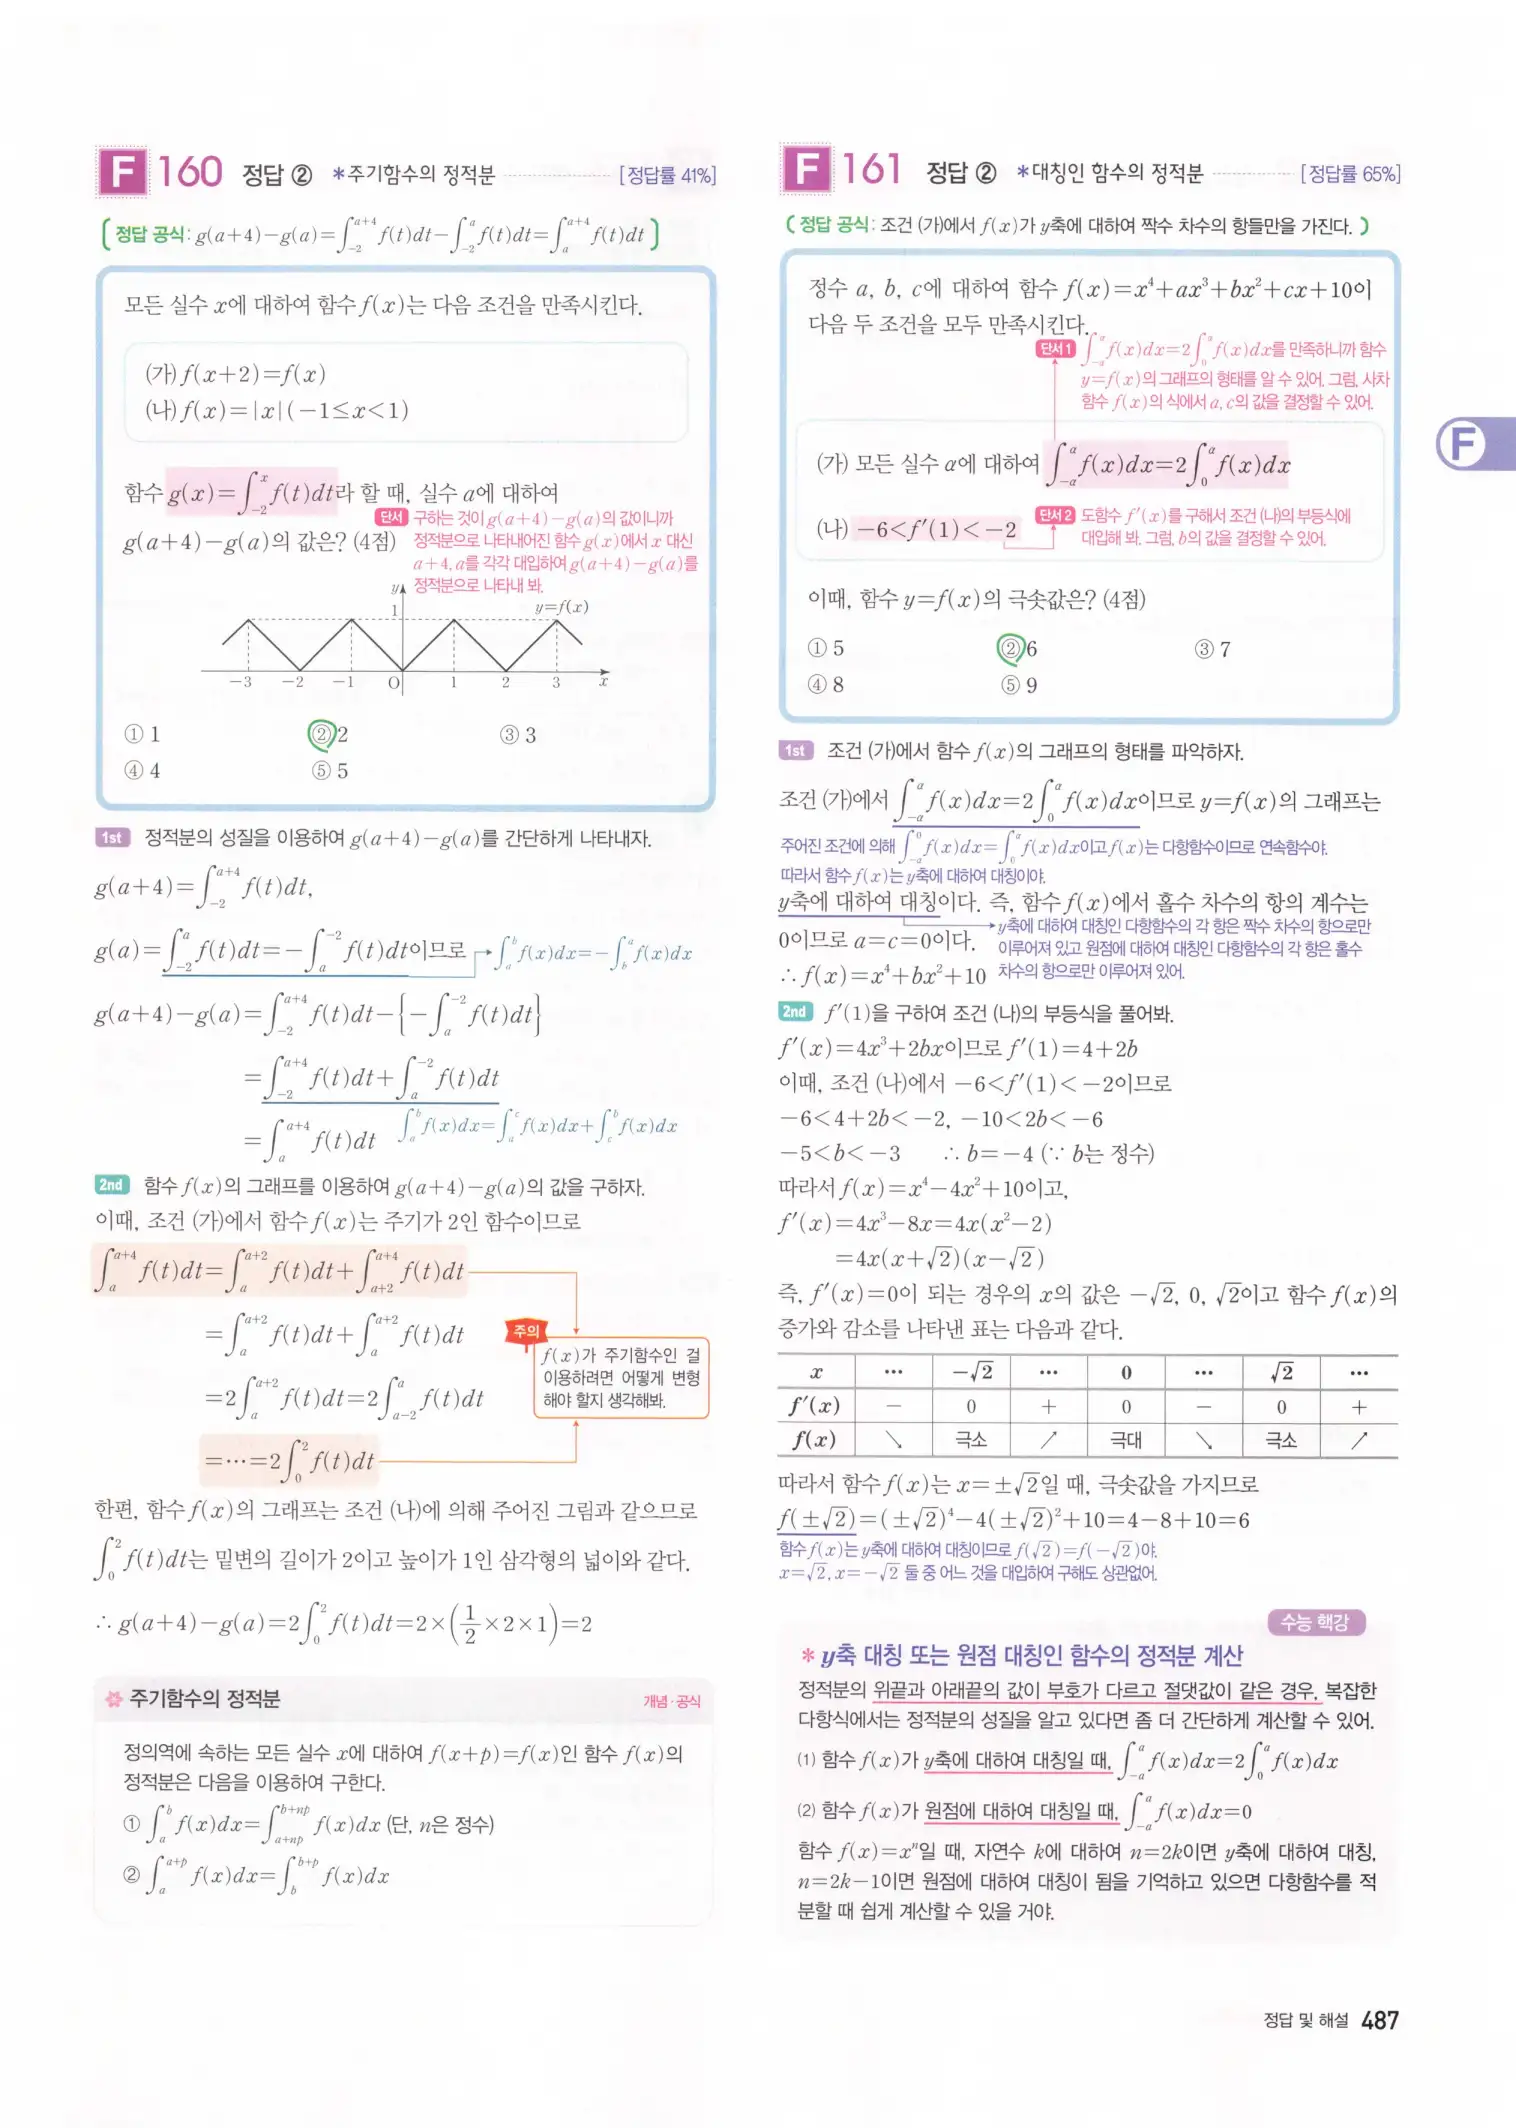 F 160 정답 ② *주기함수의 정적분 [정답률 41%]
(정답 공식: g(a+4)-g(a)=∫_{-2}^{a+4} f(t)dt-∫_{-2}^{a} f(t)dt=∫_{a}^{a+4} f(t)dt)
모든 실수 x에 대하여 함수 f(x)는 다음 조건을 만족시킨다.
(가) f(x+2)=f(x)
(나) f(x)=|x|(-1≤x<1)
함수 g(x)=∫_{-2}^{x} f(t)dt라 할 때, 실수 a에 대하여
단서 구하는 것이 g(a+4)-g(a)의 값이니까
g(a+4)-g(a)의 값은? (4점) 정적분으로 나타내어진 함수 g(x)에서 x 대신
a+4, a를 각각 대입하여 g(a+4)-g(a)를
정적분으로 나타내 봐.
y
1 y=f(x)
-3 -2 -1 O 1 2 3 x
① 1 ② 2 ③ 3
④ 4 ⑤ 5
1st 정적분의 성질을 이용하여 g(a+4)-g(a)를 간단하게 나타내자.
g(a+4)=∫_{-2}^{a+4} f(t)dt,
g(a)=∫_{-2}^{a} f(t)dt=-∫_{a}^{-2} f(t)dt이므로 → ∫_{a}^{b} f(x)dx=-∫_{b}^{a} f(x)dx
g(a+4)-g(a)=∫_{-2}^{a+4} f(t)dt-{-∫_{a}^{-2} f(t)dt}
=∫_{-2}^{a+4} f(t)dt+∫_{a}^{-2} f(t)dt
=∫_{a}^{a+4} f(t)dt ∫_{a}^{b} f(x)dx=∫_{a}^{c} f(x)dx+∫_{c}^{b} f(x)dx
2nd 함수 f(x)의 그래프를 이용하여 g(a+4)-g(a)의 값을 구하자.
이때, 조건 (가)에서 함수 f(x)는 주기가 2인 함수이므로
∫_{a}^{a+4} f(t)dt=∫_{a}^{a+2} f(t)dt+∫_{a+2}^{a+4} f(t)dt
=∫_{a}^{a+2} f(t)dt+∫_{a}^{a+2} f(t)dt
=2∫_{a}^{a+2} f(t)dt=2∫_{a-2}^{a} f(t)dt
=⋯=2∫_{0}^{2} f(t)dt
주의
f(x)가 주기함수인 걸
이용하려면 어떻게 변형
해야 할지 생각해봐.
한편, 함수 f(x)의 그래프는 조건 (나)에 의해 주어진 그림과 같으므로
∫_{0}^{2} f(t)dt는 밑변의 길이가 2이고 높이가 1인 삼각형의 넓이와 같다.
∴ g(a+4)-g(a)=2∫_{0}^{2} f(t)dt=2×(1/2×2×1)=2
주기함수의 정적분 개념·공식
정의역에 속하는 모든 실수 x에 대하여 f(x+p)=f(x)인 함수 f(x)의
정적분은 다음을 이용하여 구한다.
① ∫_{a}^{b} f(x)dx=∫_{a+np}^{b+np} f(x)dx (단, n은 정수)
② ∫_{a}^{a+p} f(x)dx=∫_{b}^{b+p} f(x)dx
F 161 정답 ② *대칭인 함수의 정적분 [정답률 65%]
(정답 공식: 조건 (가)에서 f(x)가 y축에 대하여 짝수 차수의 항들만을 가진다.)
정수 a, b, c에 대하여 함수 f(x)=x⁴+ax³+bx²+cx+10이
다음 두 조건을 모두 만족시킨다.
단서1 ∫_{-a}^{a} f(x)dx=2∫_{0}^{a} f(x)dx를 만족하니까 함수
y=f(x)의 그래프의 형태를 알 수 있어. 그럼, 사차
함수 f(x)의 식에서 a, c의 값을 결정할 수 있어.
(가) 모든 실수 α에 대하여 ∫_{-α}^{α} f(x)dx=2∫_{0}^{α} f(x)dx
(나) -6<f′(1)<-2
단서2 도함수 f′(x)를 구해서 조건 (나)의 부등식에
대입해 봐. 그럼, b의 값을 결정할 수 있어.
이때, 함수 y=f(x)의 극솟값은? (4점)
① 5 ② 6 ③ 7
④ 8 ⑤ 9
1st 조건 (가)에서 함수 f(x)의 그래프의 형태를 파악하자.
조건 (가)에서 ∫_{-α}^{α} f(x)dx=2∫_{0}^{α} f(x)dx이므로 y=f(x)의 그래프는
주어진 조건에 의해 ∫_{-α}^{0} f(x)dx=∫_{0}^{α} f(x)dx이고 f(x)는 다항함수이므로 연속함수야.
따라서 함수 f(x)는 y축에 대하여 대칭이야.
y축에 대하여 대칭이다. 즉, 함수 f(x)에서 홀수 차수의 항의 계수는
→ y축에 대하여 대칭인 다항함수의 각 항은 짝수 차수의 항으로만
0이므로 a=c=0이다. 이루어져 있고 원점에 대하여 대칭인 다항함수의 각 항은 홀수
∴ f(x)=x⁴+bx²+10 차수의 항으로만 이루어져 있어.
2nd f′(1)을 구하여 조건 (나)의 부등식을 풀어봐.
f′(x)=4x³+2bx이므로 f′(1)=4+2b
이때, 조건 (나)에서 -6<f′(1)<-2이므로
-6<4+2b<-2, -10<2b<-6
-5<b<-3 ∴ b=-4 (∵ b는 정수)
따라서 f(x)=x⁴-4x²+10이고,
f′(x)=4x³-8x=4x(x²-2)
=4x(x+√2)(x-√2)
즉, f′(x)=0이 되는 경우의 x의 값은 -√2, 0, √2이고 함수 f(x)의
증가와 감소를 나타낸 표는 다음과 같다.
x ⋯ -√2 ⋯ 0 ⋯ √2 ⋯
f′(x) - 0 + 0 - 0 +
f(x) ↘ 극소 ↗ 극대 ↘ 극소 ↗
따라서 함수 f(x)는 x=±√2일 때, 극솟값을 가지므로
f(±√2)=(±√2)⁴-4(±√2)²+10=4-8+10=6
함수 f(x)는 y축에 대하여 대칭이므로 f(√2)=f(-√2)야.
x=√2, x=-√2 둘 중 어느 것을 대입하여 구해도 상관없어.
수능 핵강
* y축 대칭 또는 원점 대칭인 함수의 정적분 계산
정적분의 위끝과 아래끝의 값이 부호가 다르고 절댓값이 같은 경우, 복잡한
다항식에서는 정적분의 성질을 알고 있다면 좀 더 간단하게 계산할 수 있어.
(1) 함수 f(x)가 y축에 대하여 대칭일 때, ∫_{-a}^{a} f(x)dx=2∫_{0}^{a} f(x)dx
(2) 함수 f(x)가 원점에 대하여 대칭일 때, ∫_{-a}^{a} f(x)dx=0
함수 f(x)=xⁿ일 때, 자연수 k에 대하여 n=2k이면 y축에 대하여 대칭,
n=2k-1이면 원점에 대하여 대칭이 됨을 기억하고 있으면 다항함수를 적
분할 때 쉽게 계산할 수 있을 거야.
F
정답 및 해설 487